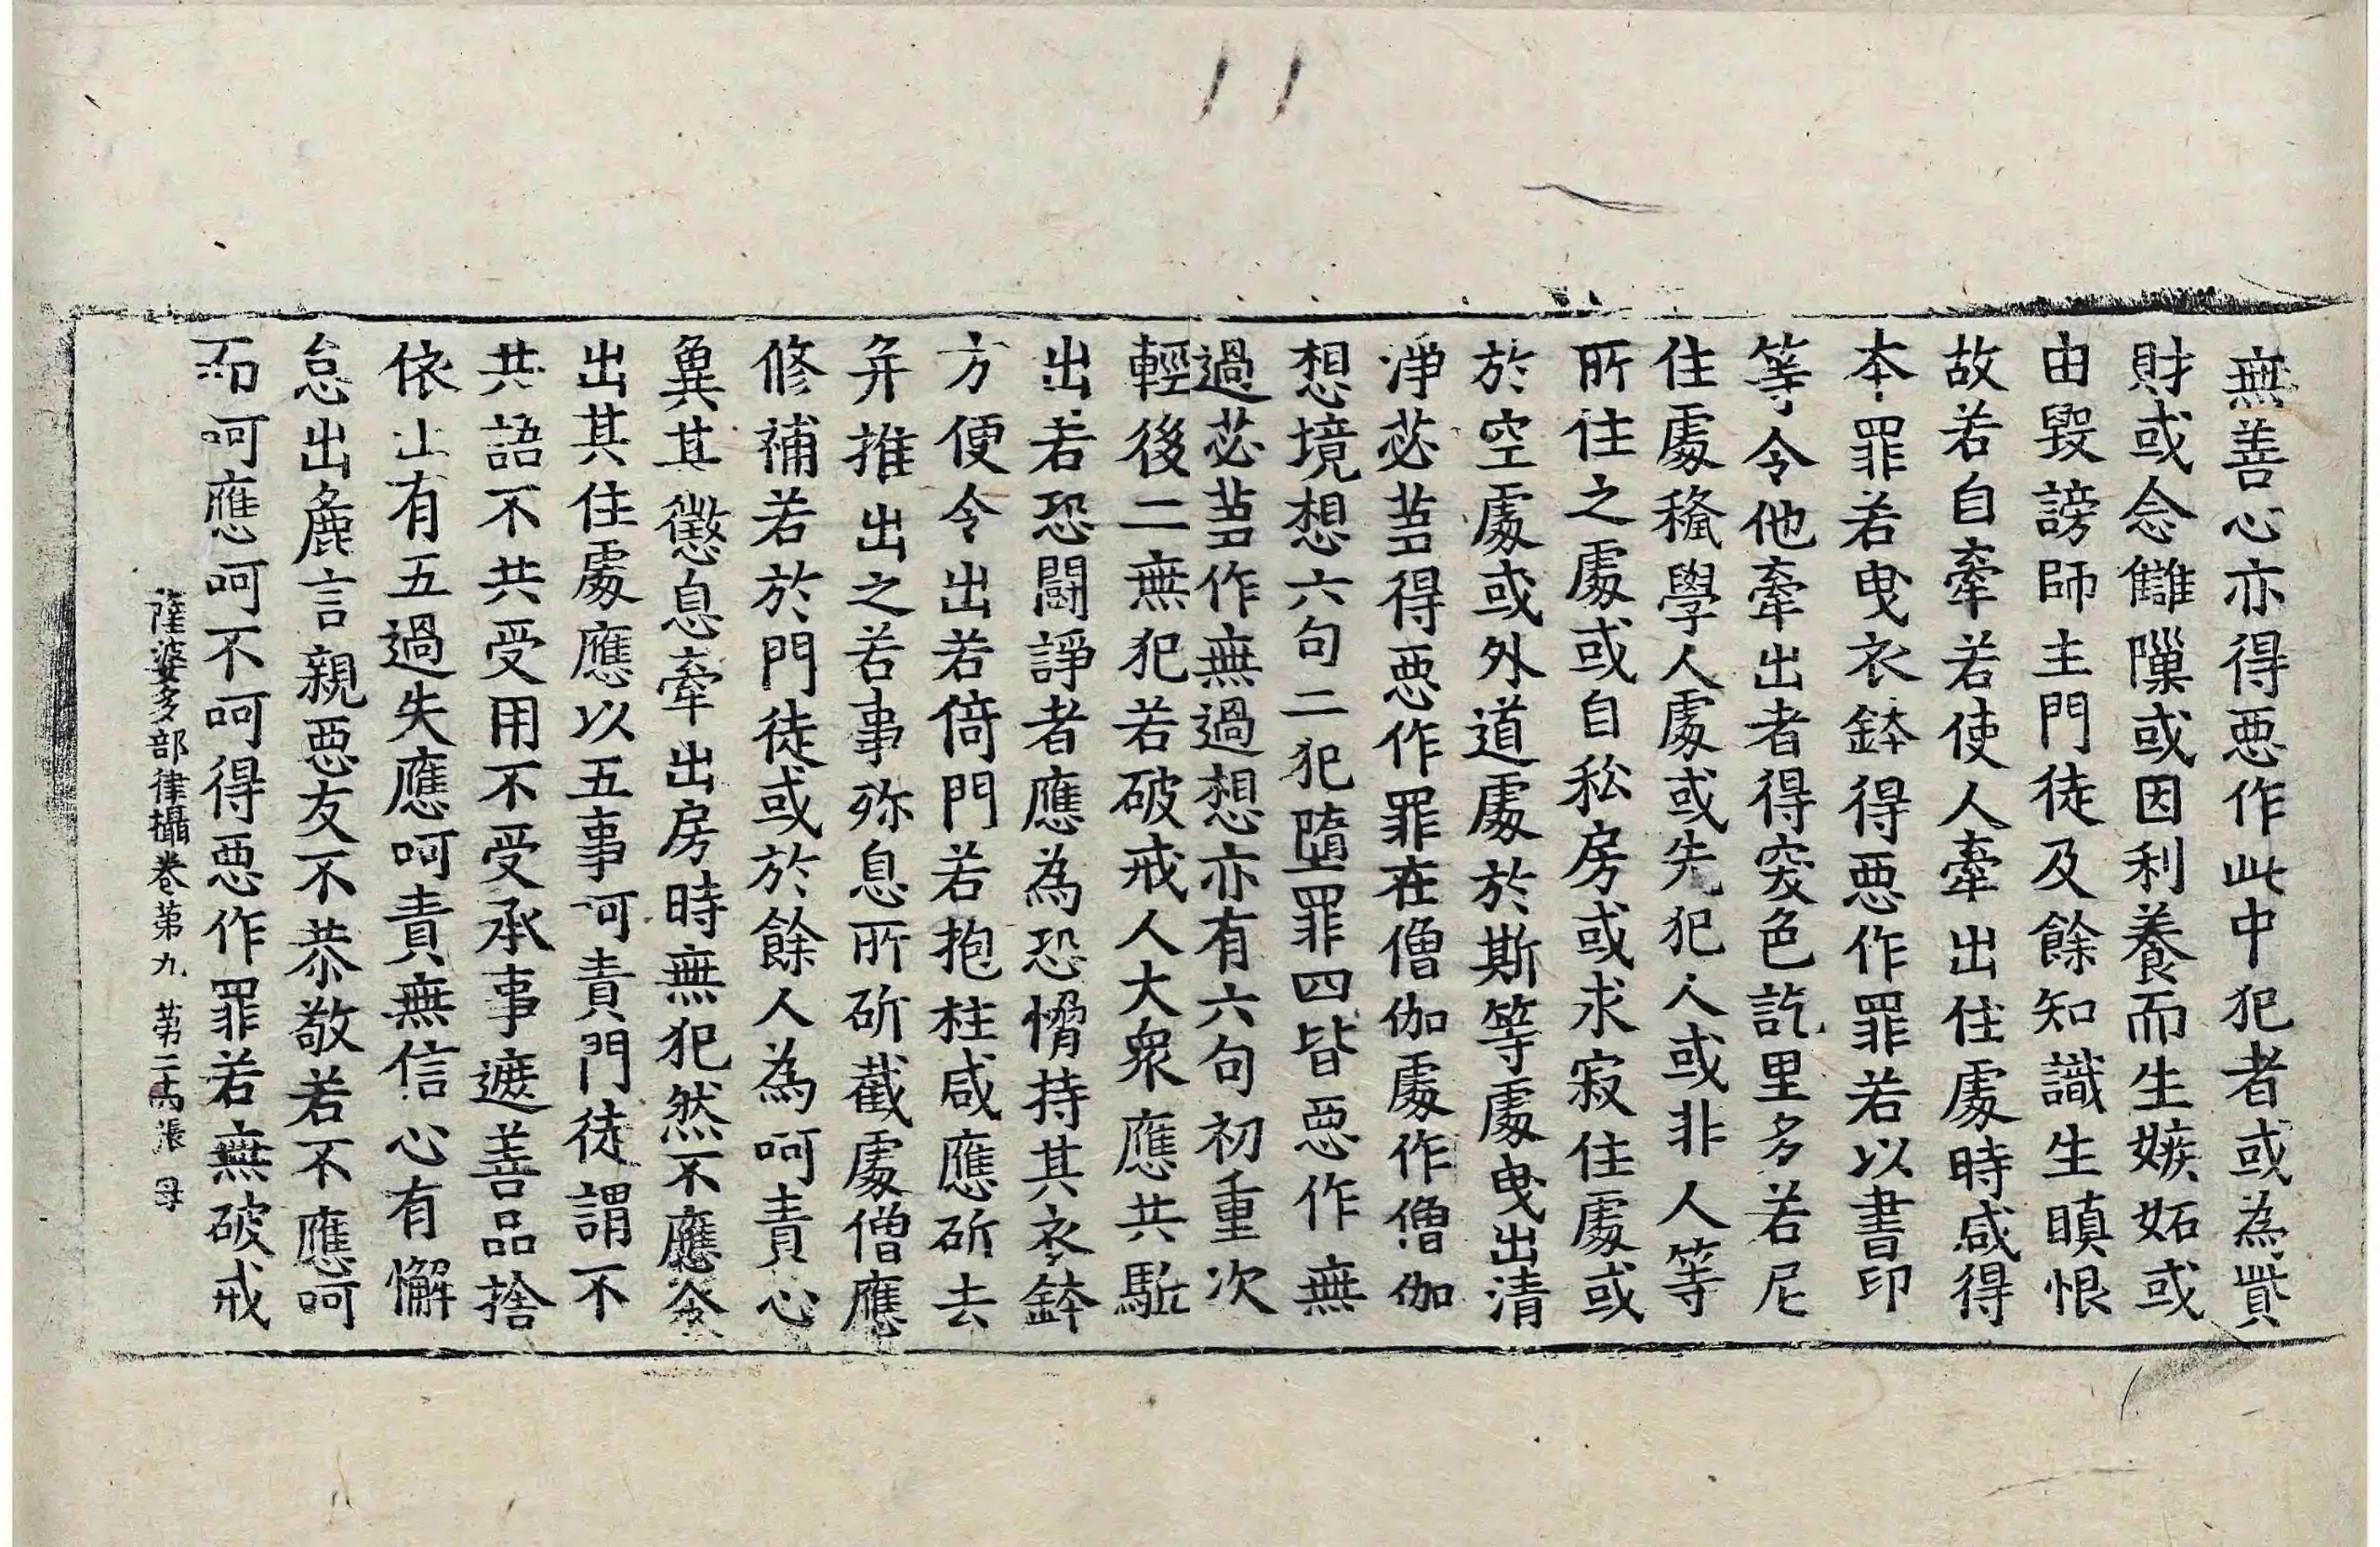 無善心亦得惡作此中犯者或為貲
財或念讎隟或因利養而生嫉妬或
由毀謗師主門徒及餘知識生瞋恨
故若自牽若使人牽出住處時咸得
本罪若曳衣鉢得惡作罪若以書印
等令他牽出者得窣色訖里多若尼
住處稱學人處或先犯人或非人等
所住之處或自私房或求寂住處或
於空處或外道處於斯等處曳出清
淨苾芻得惡作罪在僧伽處作僧伽
想境想六句二犯墮罪四皆惡作無
過苾芻作無過想亦有六句初重次
輕後二無犯若破戒人大眾應共駈
出若恐鬪諍者應為恐愶持其衣鉢
方便令出若倚門若抱柱咸應斫去
并推出之若事殄息所斫截處僧應
修補若於門徒或於餘人為呵責心
兾其懲息牽出房時無犯然不應令
出其住處應以五事呵責門徒謂不
共語不共受用不受承事遮善品捨
依止有五過失應呵責無信心有懈
怠出麁言親惡友不恭敬若不應呵
而呵應呵不呵得惡作罪若無破戒
薩婆多部律攝卷第九 第二 張 母